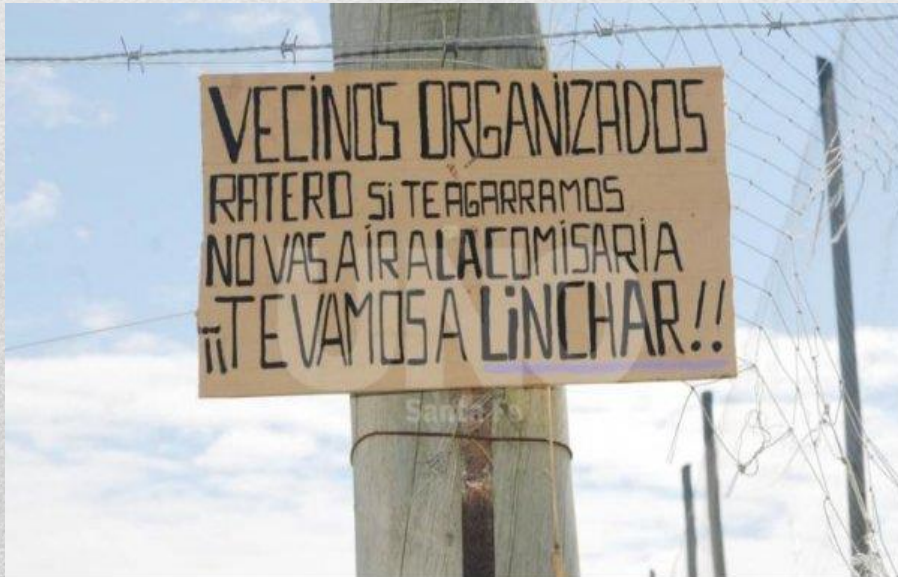 VECINOS ORGANIZADOS
RATERO Si TE AGARRAMOS
NO VAS A IR A LA COMISARIA
¡¡TE VAMOS A LiNCHAR!!
UNO
Santa Fe